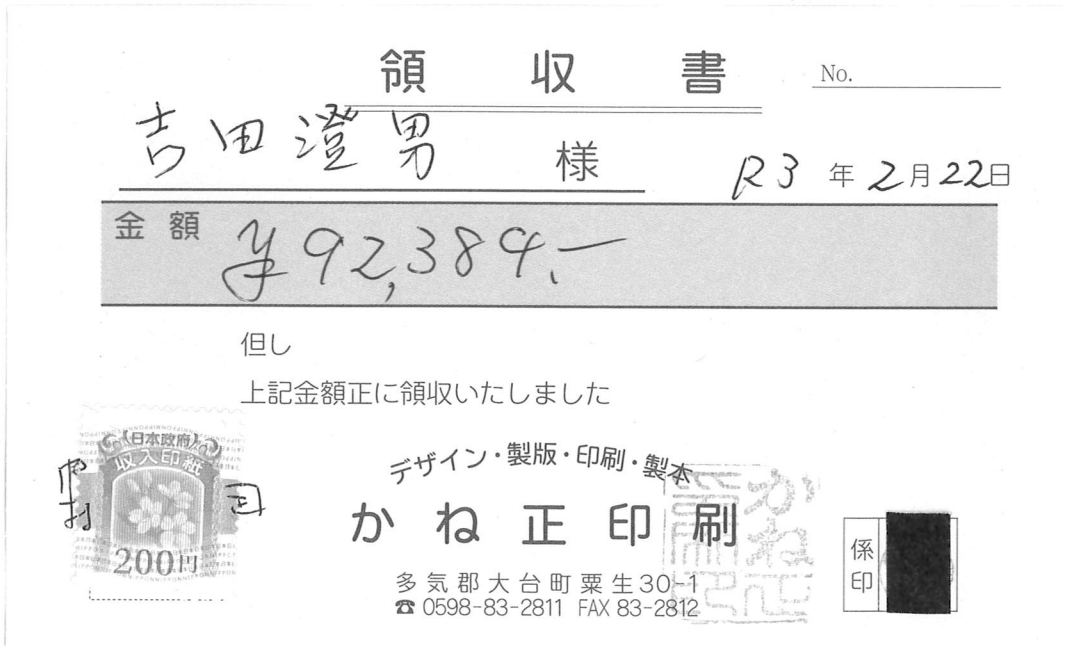 領収書
No.
吉田澄男 様
R3年2月22日
金額 ¥92,384.-
但し
上記金額正に領収いたしました
日本政府
収入印紙
200円
デザイン・製版・印刷・製本
かね正印刷
多気郡大台町粟生30-1
☎ 0598-83-2811 FAX 83-2812
係印